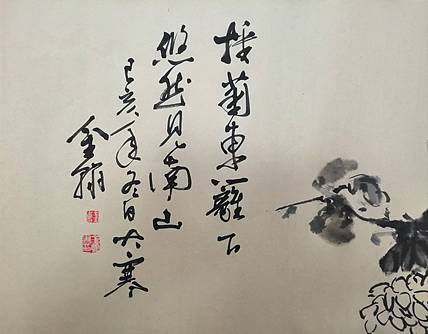 採菊東籬下
悠然見南山
己亥年冬日大寒
金翔